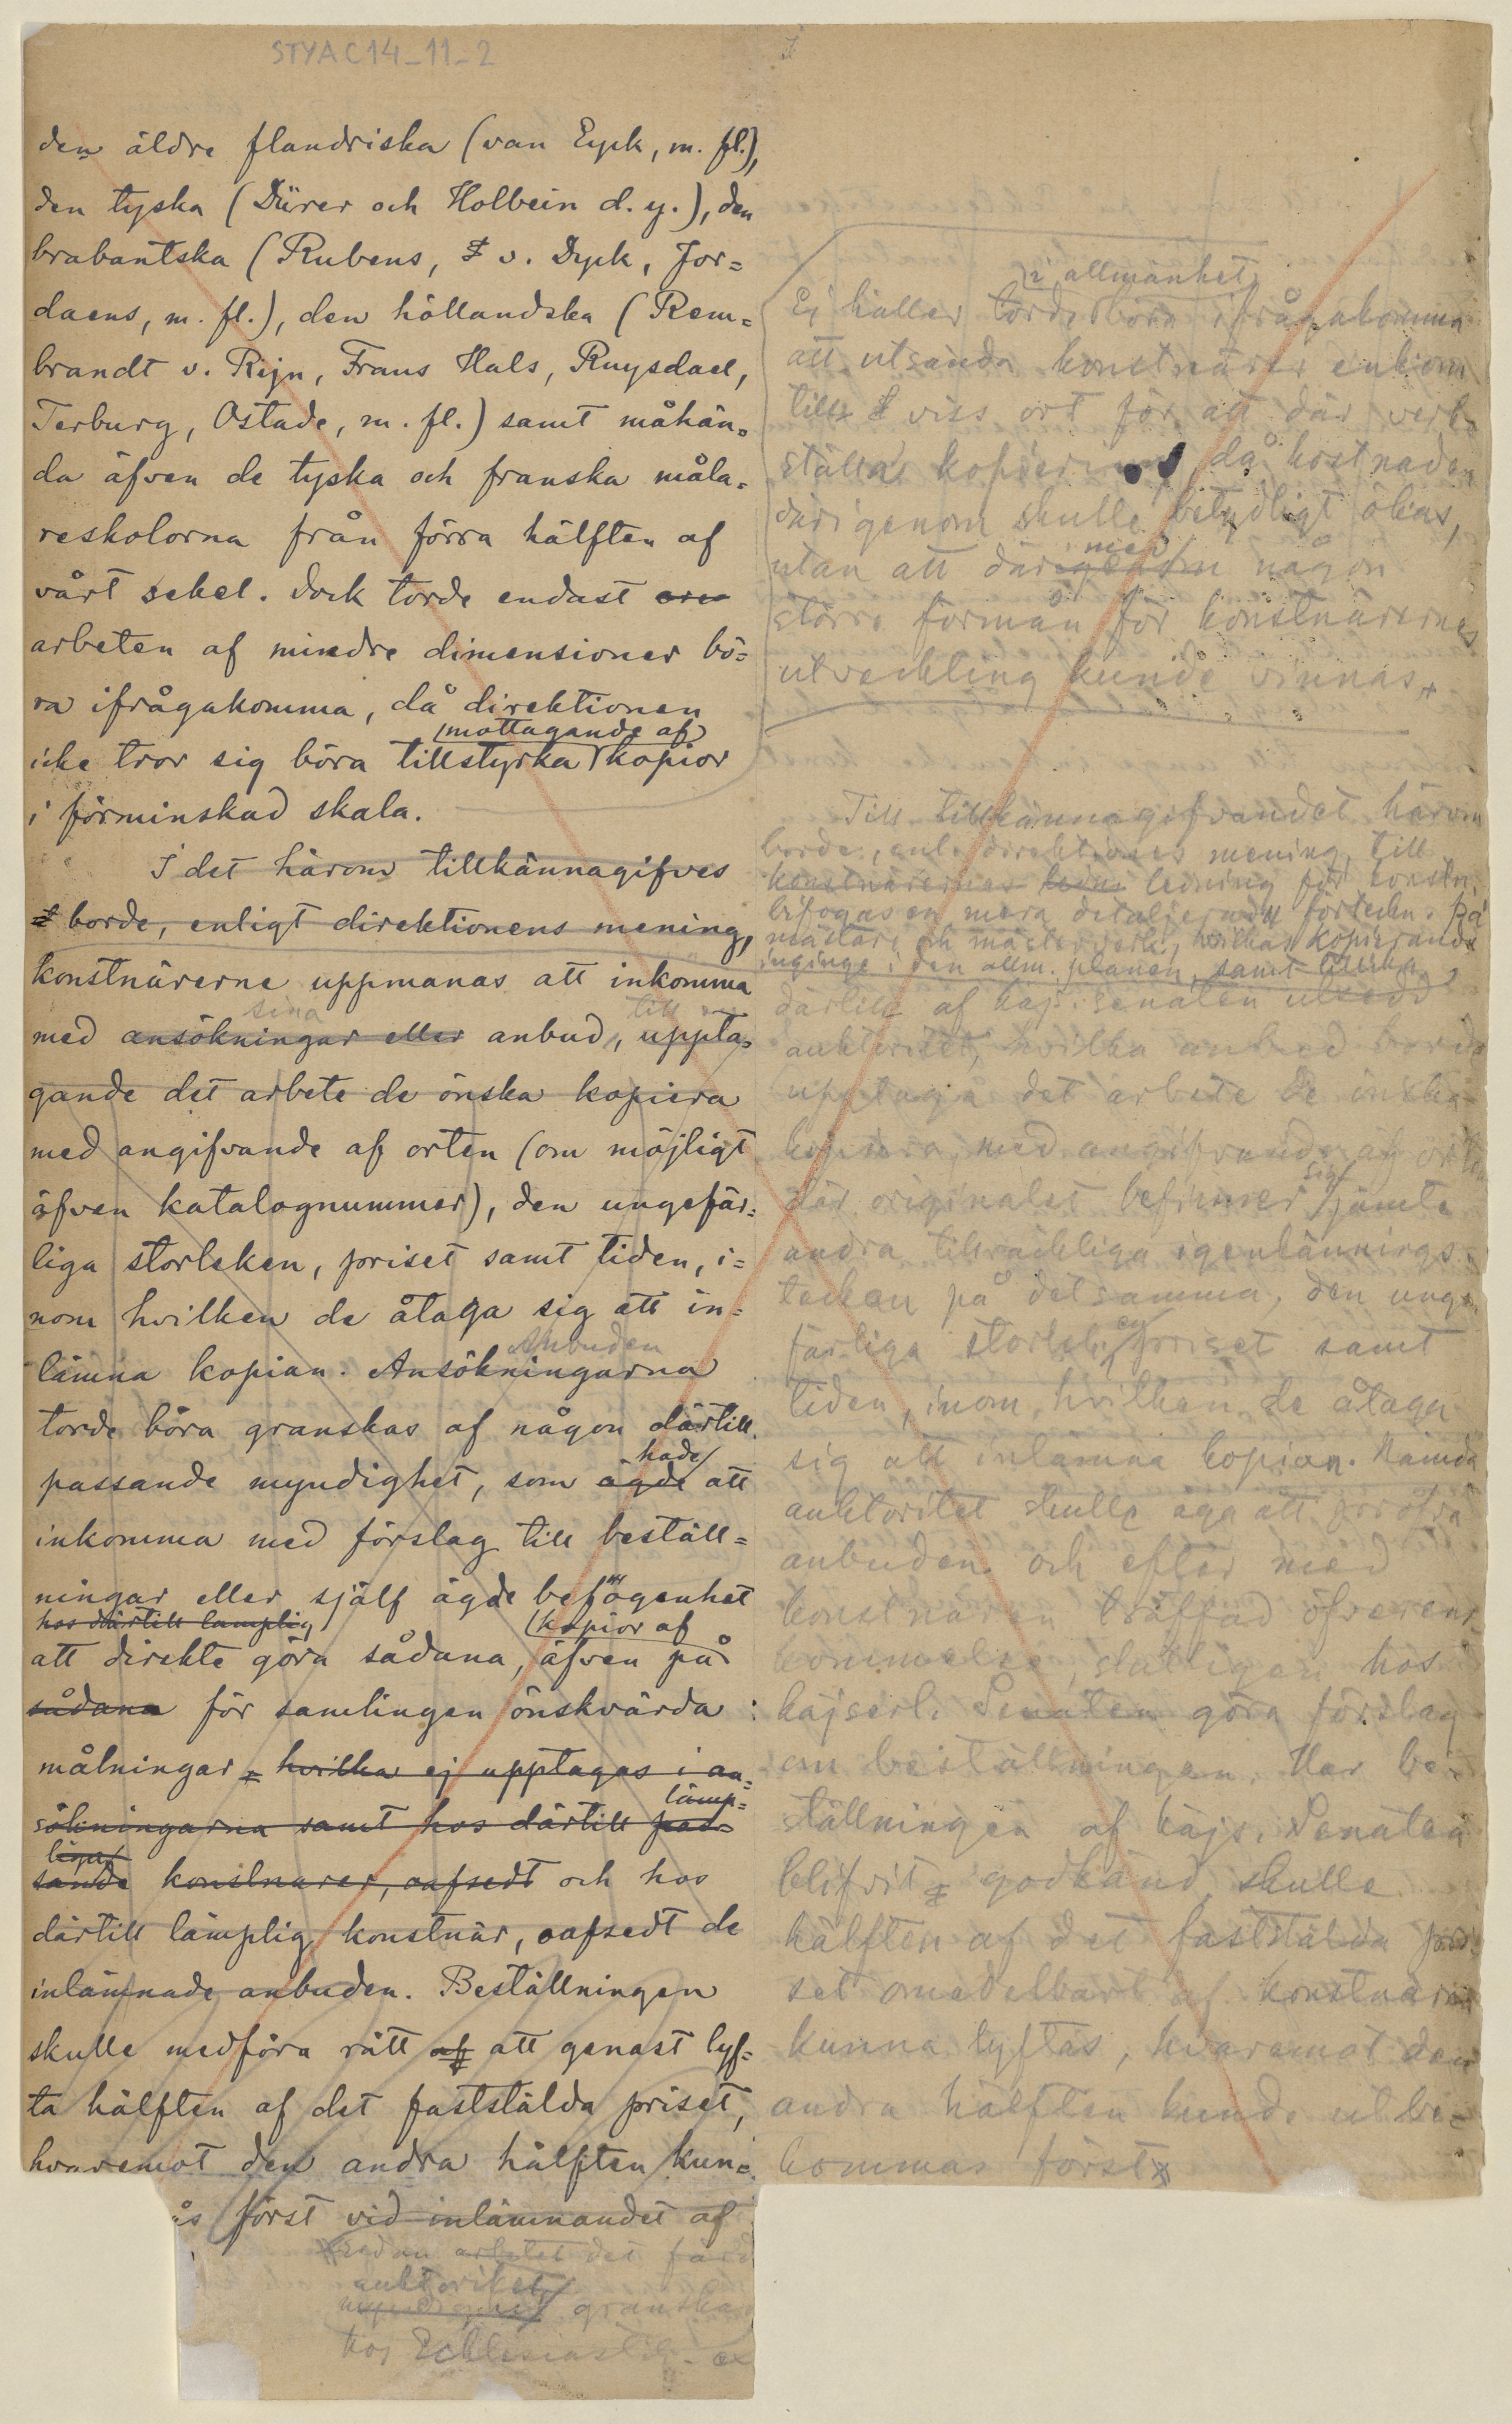 STYAC14-11-2
den äldre flandriska (van Eyck, m. fl.),
den tyska (Dürer och Holbein d. y.), den
brabantska (Rubens, v. Dyck, Jor=
daens, m. fl.), den hölländska (Rem=
brandt v. Rijn, Frans Hals, Ruysdael,
Terburg, Ostade, m. fl.) samt måhän=
da äfven de tyska och franska måla=
reskolorna från förra hälften af
vårt sekel. Dock torde endast
arbeten af mindre dimensioner bö=
ra ifrågakomma, då direktionen
mottagande af
icke tror sig böra tillstyrka kopior
i förminskad skala.
I det härom tillkännagifves
borde, enligt direktionens mening,
konstnärerne uppmanas att inkomma
sina till
med ansökningar eller anbud, uppta=
gande det arbete de önska kopiera
med angifvande af orten (om möjligt
äfven katalognummer), den ungefär=
liga storleken, priset samt tiden, i=
nom hvilken de åtaga sig att in=
Anbuden
lämna kopian. Ansökningarna
torde böra granskas af någon därtill
hade
passande myndighet, som ägde att
inkomma med förslag till beställ=
ningar eller själf ägde befogenhet
hos därtill lämplig kopior af
att direkte göra sådana, äfven på
sådana för samlingen önskvärda
målningar hvilka ej upptagas i an=
lämp=
sökningarna samt hos därtill pas=
liga
sande konstnärer, oafsedt och hos
därtill lämplig konstnär, oafsedt de
inlämnade anbuden. Beställningen
skulle medföra rätt af att genast lyf=
ta hälften af det fastställda priset,
hvaremot den andra hälften kun=
ås först vid inlämnandet af
sedan arbetet det
auktoritet
myndighet granska
hos Ecklesiastik-
i allmänhet
Ej häller torde böra ifrågakomma
att utsända konstnärer enkom
till viss ort för att där verk=
ställa kopiering då kostnaden
därigenom skulle betydligt ökas,
med
utan att därigenom någon
större förmån för konstnärernes
utveckling kunde vinnas.
Till tillkännagifvandet härom
borde, enl. direktionens mening, till
konstnärernas ledning för konstn.
bifogas en mera detaljerad förteckn. på
mästare och mästerverk, hvilkas kopierande
inginge i den allm. planen, samt
därtill af kejs. senaten utsedd
auktoritet, hvilka anbud borde
upptaga det arbete de önska
kopiera, med angifvande af orten
sig
där originalet befinner jämte
andra tillräckliga igenkännings=
tecken på detsamma, den unge=
en
färliga storlek, priset samt
tiden, inom hvilken de åtaga
sig att inlämna kopian. Nämnda
auktoritet skulle äga att pröfva
anbuden och efter med
konstnären träffad öfverens=
kommelse, slutligen hos
kejserl. Senaten göra förslag
om beställningen. Har be=
ställningen af kejs. Senaten
blifvit godkänd skulle
hälften af det fastställda pri=
set omedelbart af konstnären
kunna lyftas, hvaremot den
andra hälften kunde utbe=
kommas först